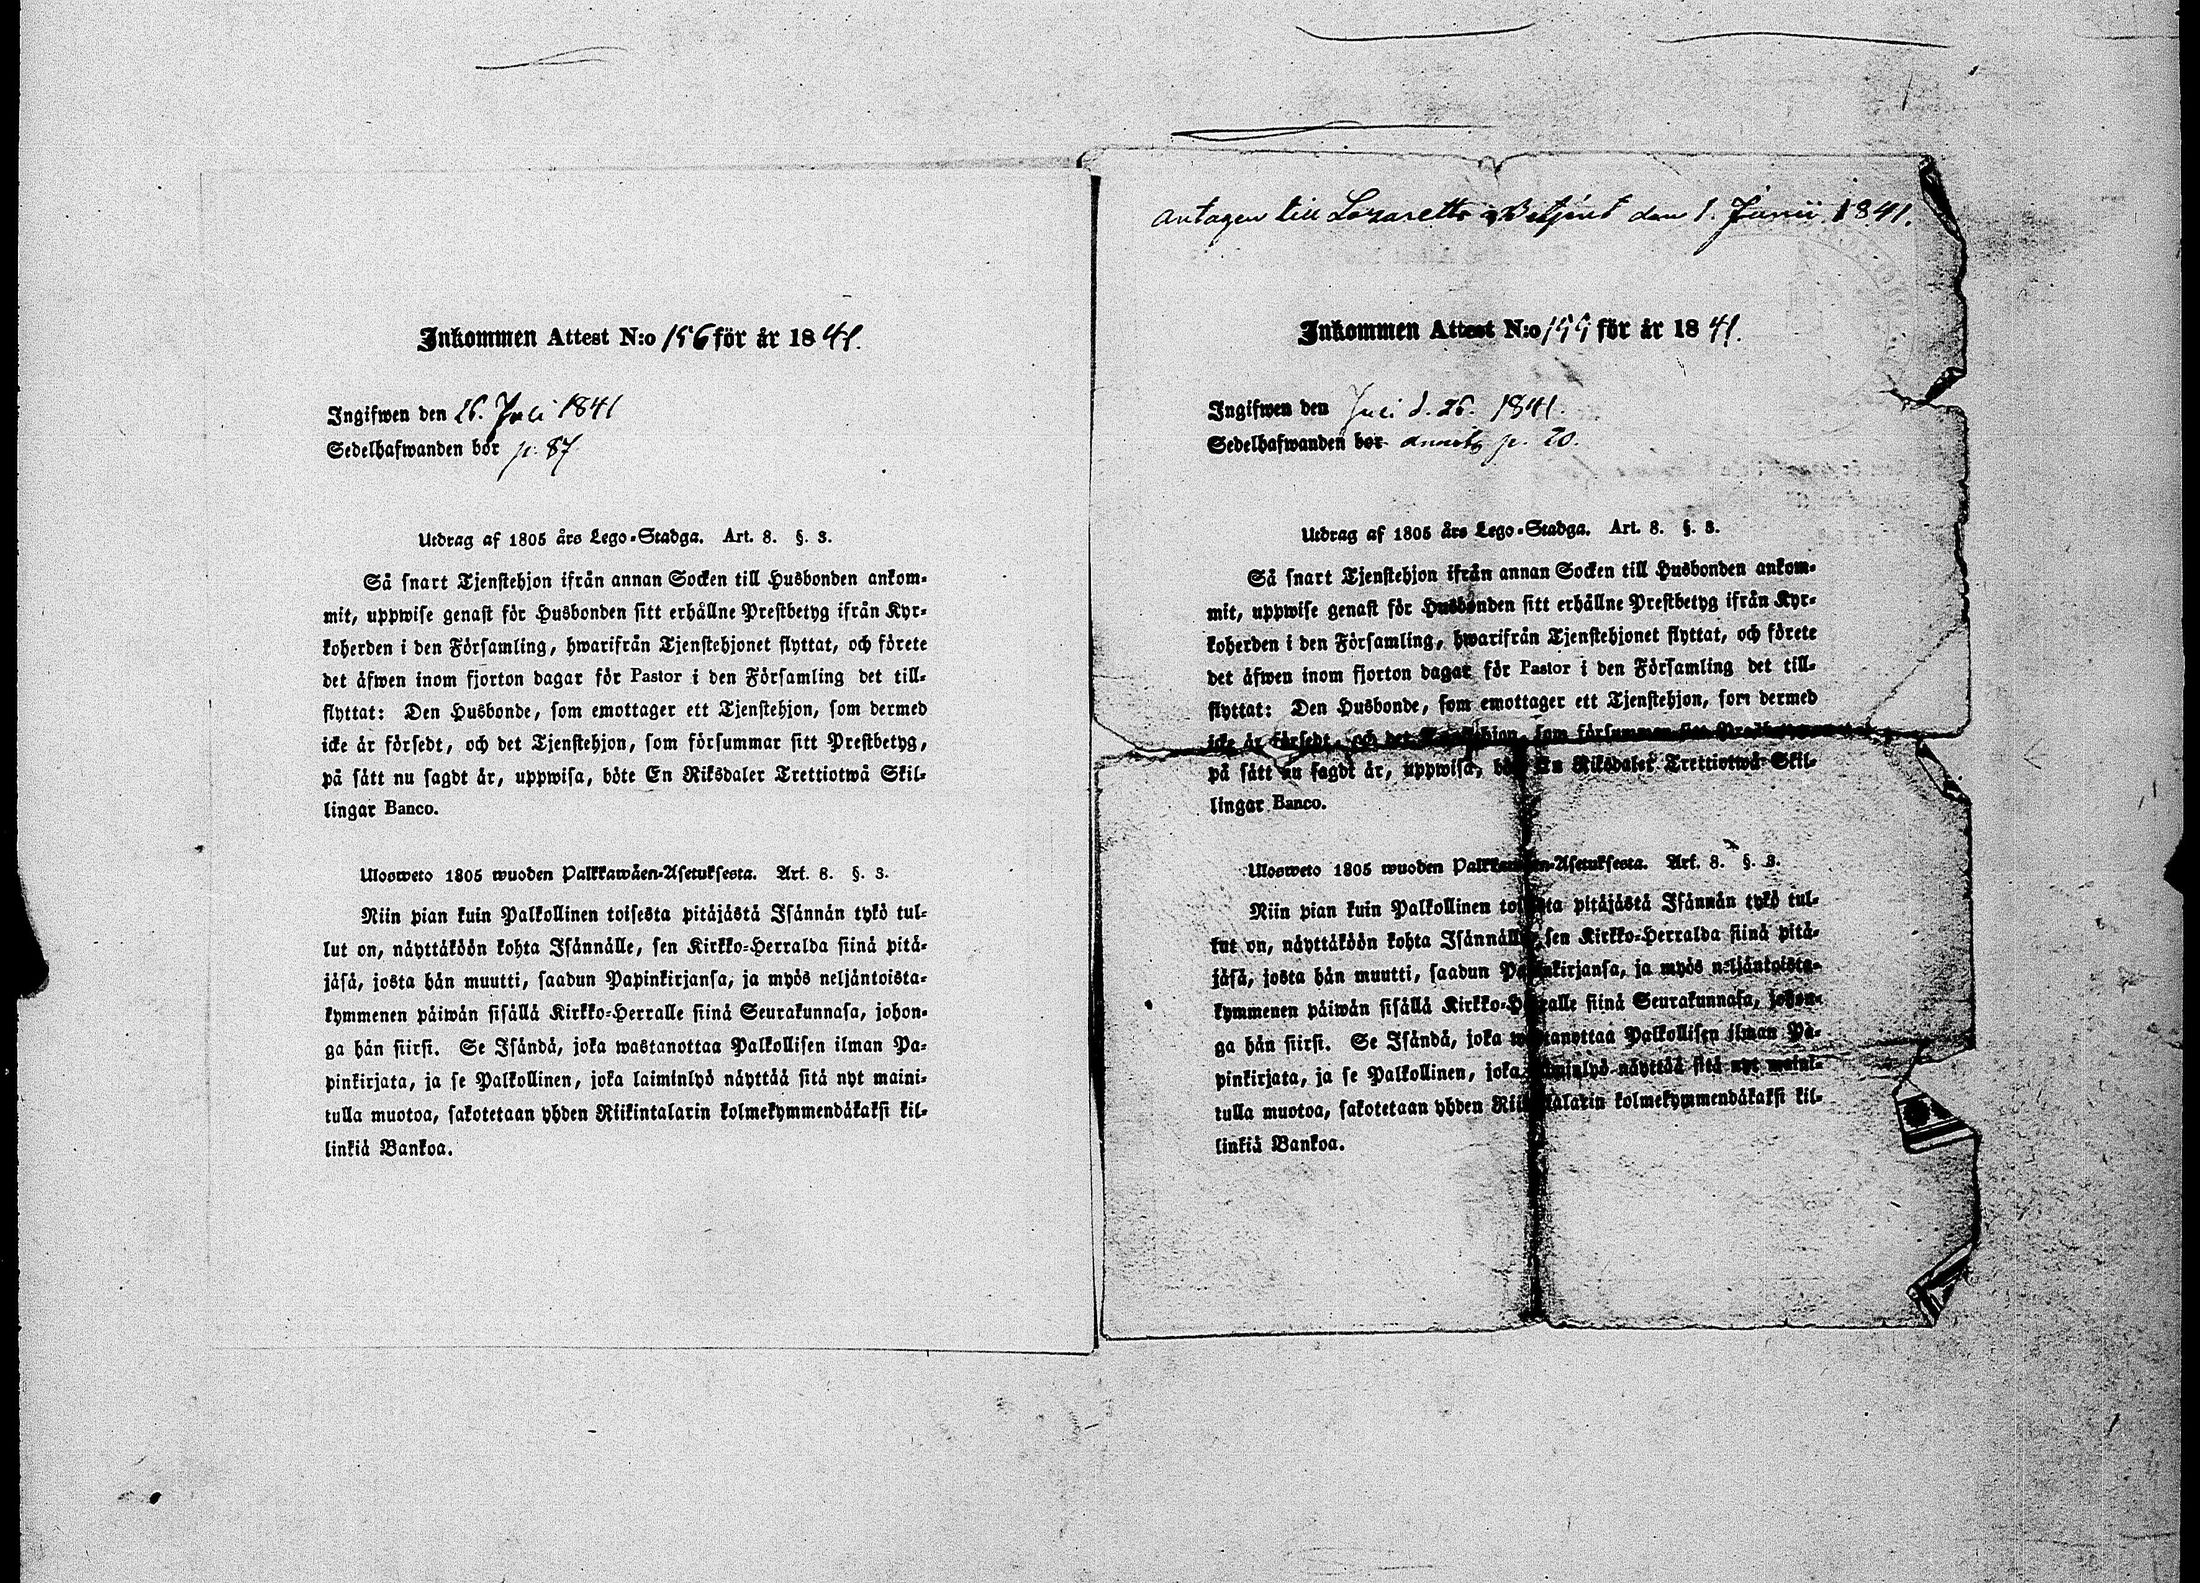 Inkommen Attest N:o 156 för år 1841.
Ingifwen den 26. Juli 1841
Sedelhafwanden bor p. 87
Utdrag af 1805 års Lego-Stadga. Art. 8. §. 3.
Så snart Tjenstehjon ifrån annan Socken till Husbonden ankom-
mit, uppwise genast för Husbonden sitt erhållne Prestbetyg ifrån Kyr-
koherden i den Församling, hwarifrån Tjenstehjonet flyttat, och förete
det äfwen inom fjorton dagar för Pastor i den Församling det till-
flyttat: Den Husbonde, som emottager ett Tjenstehjon, som dermed
icke är försedt, och det Tjenstehjon, som försummar sitt Prestbetyg,
på sätt nu sagdt är, uppwisa, böte En Riksdaler Trettiotwå Skil-
lingar Banco.
Ulosweto 1805 wuoden Palkkawäen-Asetuksesta. Art. 8. §. 3.
Niin pian kuin Palkollinen toisesta pitäjästä Isännän tykö tul-
lut on, näyttäköön kohta Isännälle, sen Kirkko-Herralda siinä pitä-
jäsä, josta hän muutti, saadun Papinkirjansa, ja myös neljäntoista-
kymmenen päiwän sisällä Kirkko-Herralle siinä Seurakunnasa, johon-
ga hän siirsi. Se Isändä, joka wastanottaa Palkollisen ilman Pa-
pinkirjata, ja se Palkollinen, joka laiminlyö näyttää sitä nyt maini-
tulla muotoa, sakotetaan yhden Riikintalarin kolmekymmendäkaksi kil-
linkiä Bankoa.
antagen till Lazaretts Betjent den 1. Junii 1841.
Inkommen Attest N:o 155 för år 1841.
Ingifwen den Juli d. 26. 1841.
Sedelhafwanden bor p. 20.
Utdrag af 1805 års Lego-Stadga. Art. 8. §. 3.
Så snart Tjenstehjon ifrån annan Socken till Husbonden ankom-
mit, uppwise genast för Husbonden sitt erhållne Prestbetyg ifrån Kyr-
koherden i den Församling, hwarifrån Tjenstehjonet flyttat, och förete
det äfwen inom fjorton dagar för Pastor i den Församling det till-
flyttat: Den Husbonde, som emottager ett Tjenstehjon, som dermed
icke är försedt, och det Tjenstehjon, som försummar sitt Prestbetyg,
på sätt nu sagdt är, uppwisa, böte En Riksdaler Trettiotwå Skil-
lingar Banco.
Ulosweto 1805 wuoden Palkkawäen-Asetuksesta. Art. 8. §. 3.
Niin pian kuin Palkollinen toisesta pitäjästä Isännän tykö tul-
lut on, näyttäköön kohta Isännälle, sen Kirkko-Herralda siinä pitä-
jäsä, josta hän muutti, saadun Papinkirjansa, ja myös neljäntoista-
kymmenen päiwän sisällä Kirkko-Herralle siinä Seurakunnasa, johon-
ga hän siirsi. Se Isändä, joka wastanottaa Palkollisen ilman Pa-
pinkirjata, ja se Palkollinen, joka laiminlyö näyttää sitä nyt maini-
tulla muotoa, sakotetaan yhden Riikintalarin kolmekymmendäkaksi kil-
linkiä Bankoa.